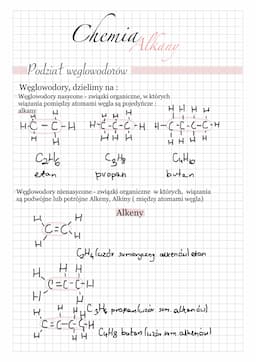 Chemia
Alkany
Podział węglowodorów
Węglowodory, dzielimy na :
Węglowodory nasycone - związki organiczne, w których
wiązania pomiędzy atomami węgla są pojedyńcze :
alkany
H H H H H H H H H
H-C-C-H H-C-C-C-H H-C-C-C-C-H
H H H H H H H H H
C2H6 C3H8 C4H10
etan propan butan
Węglowodory nienasycone - związki organiczne w których, wiązania
są podwójne lub potrójne Alkeny, Alkiny ( między atomami węgla)
Alkeny
H H
C=C
H H
C2H4 (wzór sumaryczny alkenów) etan
H H
H C=C-C-H
H H
C3H6 propan (wzór sum. alkenów)
H H H H
C=C-C-C-H
H H H
C4H8 butan (wzór sum. alkenów)